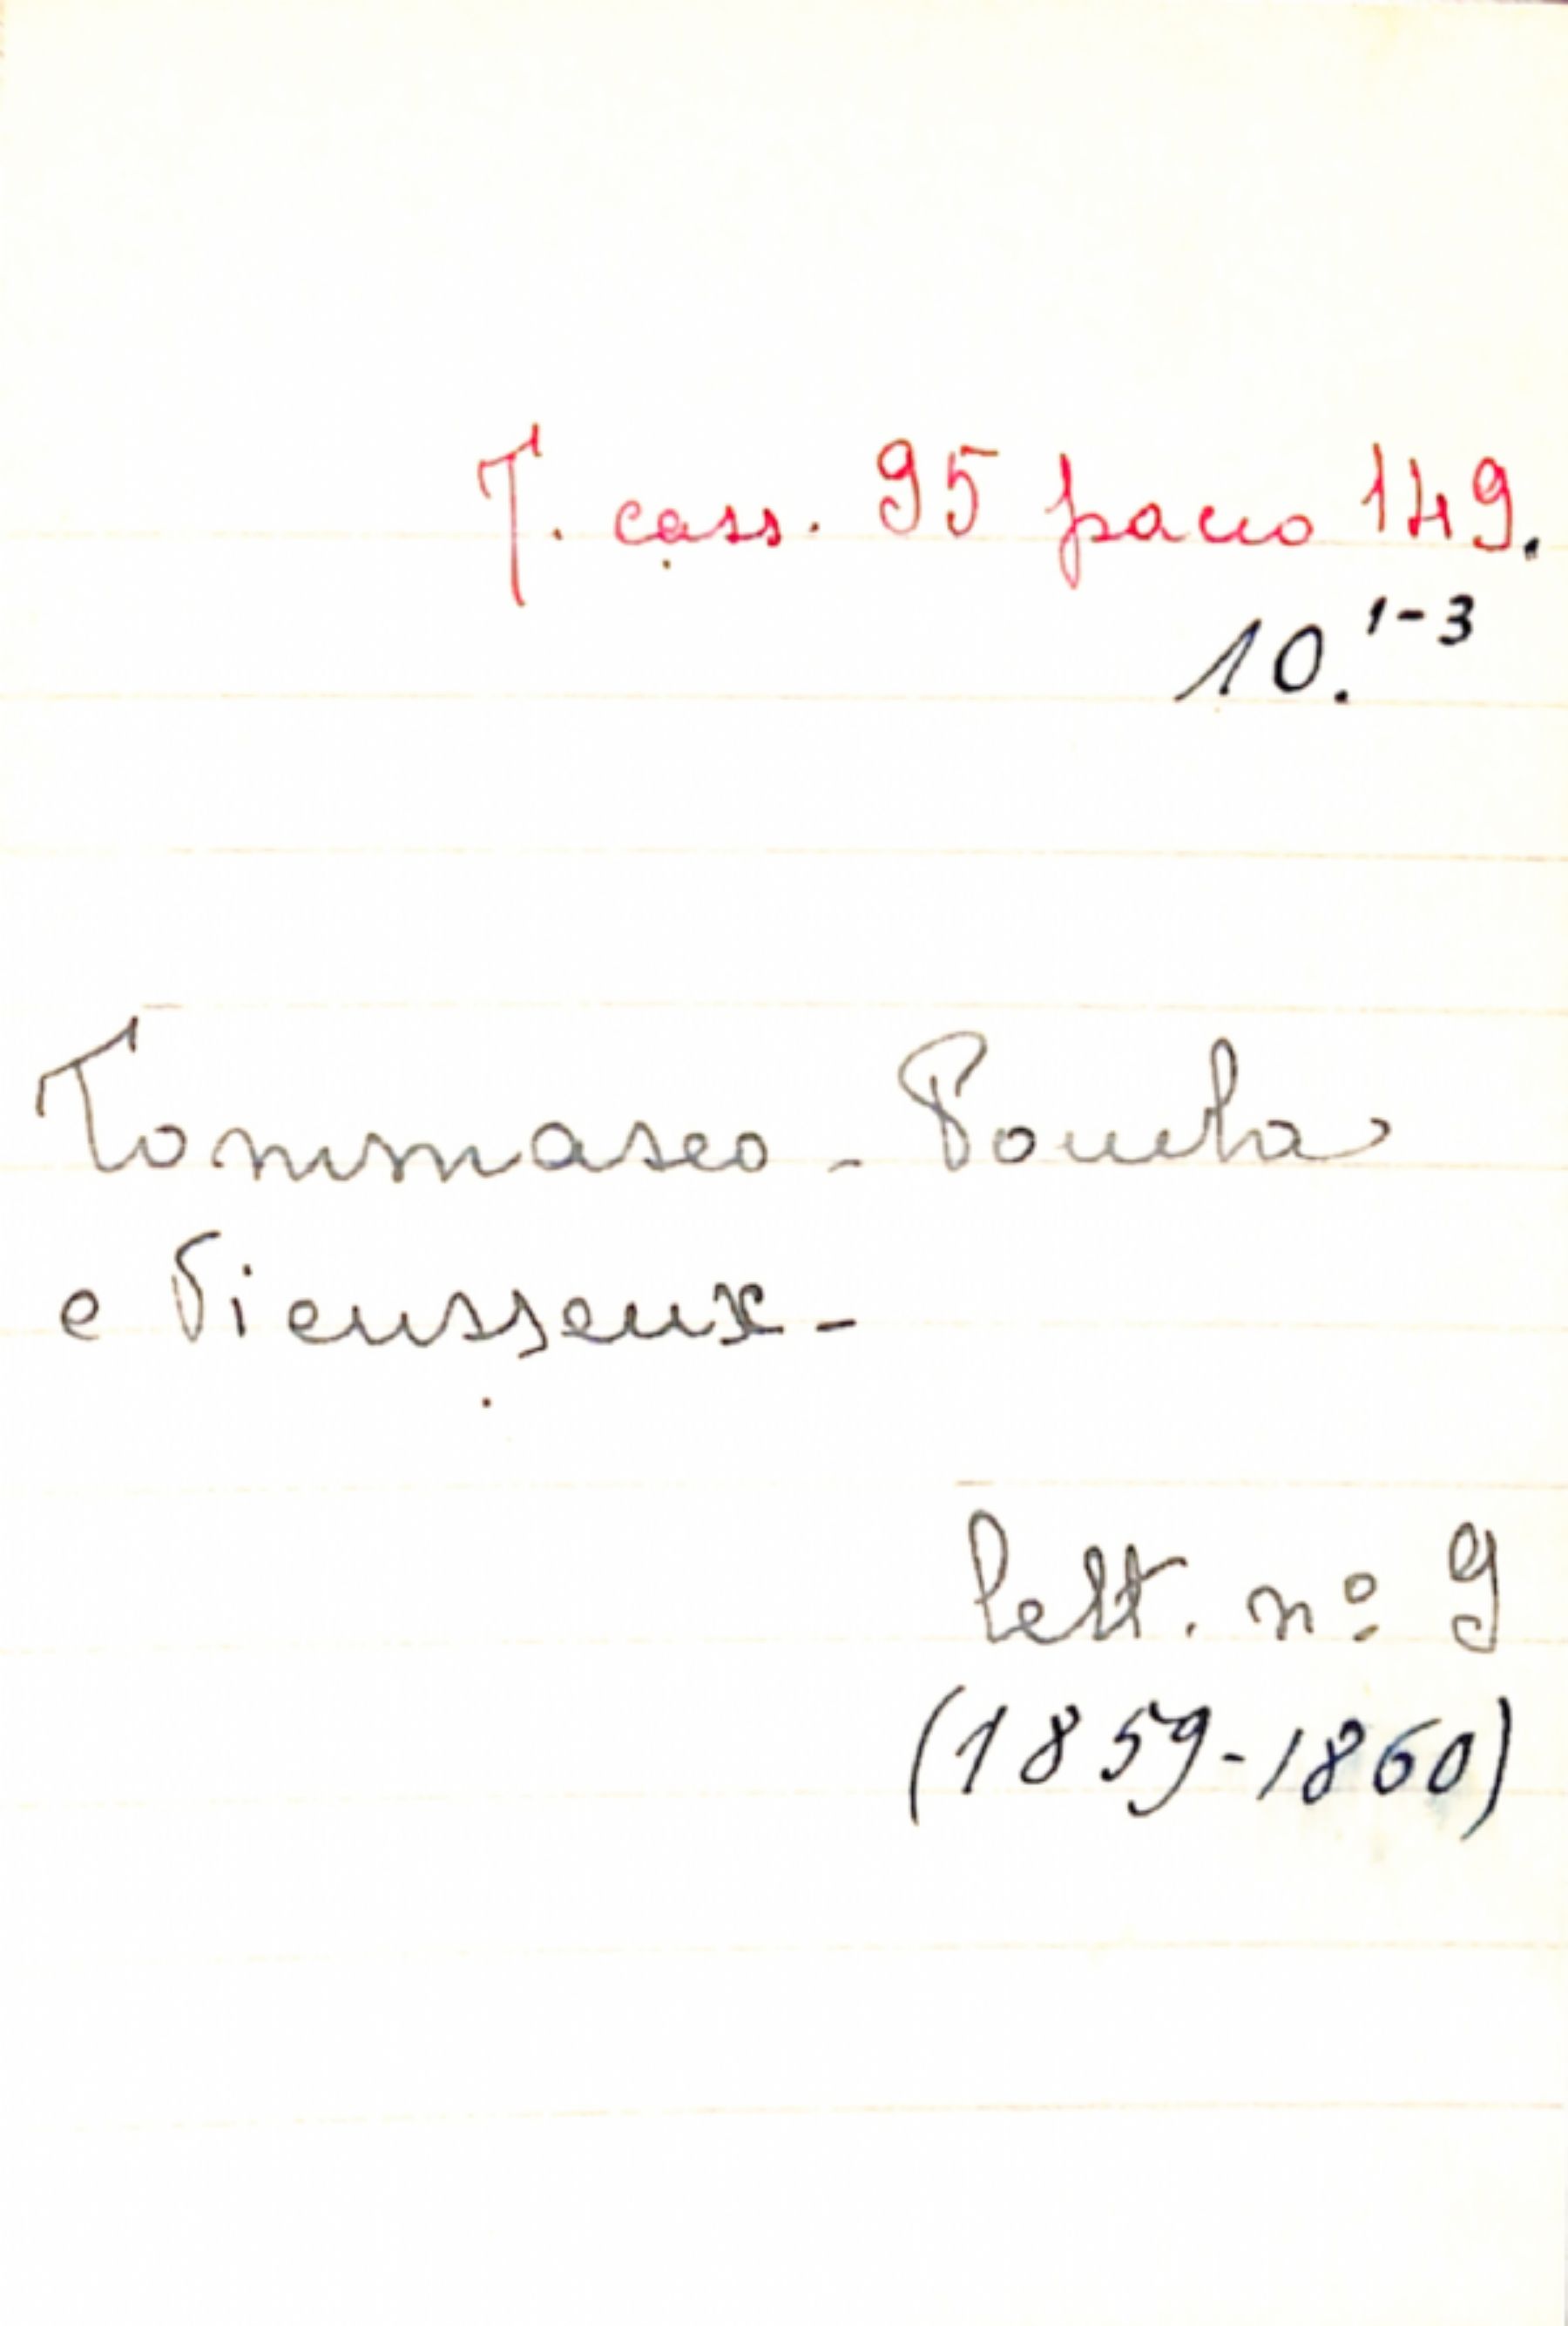 T. cass. 95 pacco 149.
10.¹⁻³
Tommaseo - Pomba
e Vieusseux -
lett. nº 9
(1859-1860)